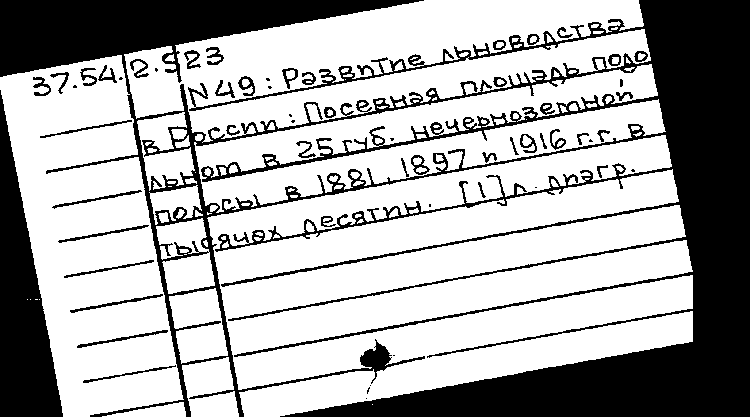 37.54.2.523
N49: Развитие льноводства
в России: Посевная площадь подо
льном в 25 губ. нечерноземной
полосы в 1881, 1897 и 1916 г.г. в
тысячах десятин. [1] л. диагр.